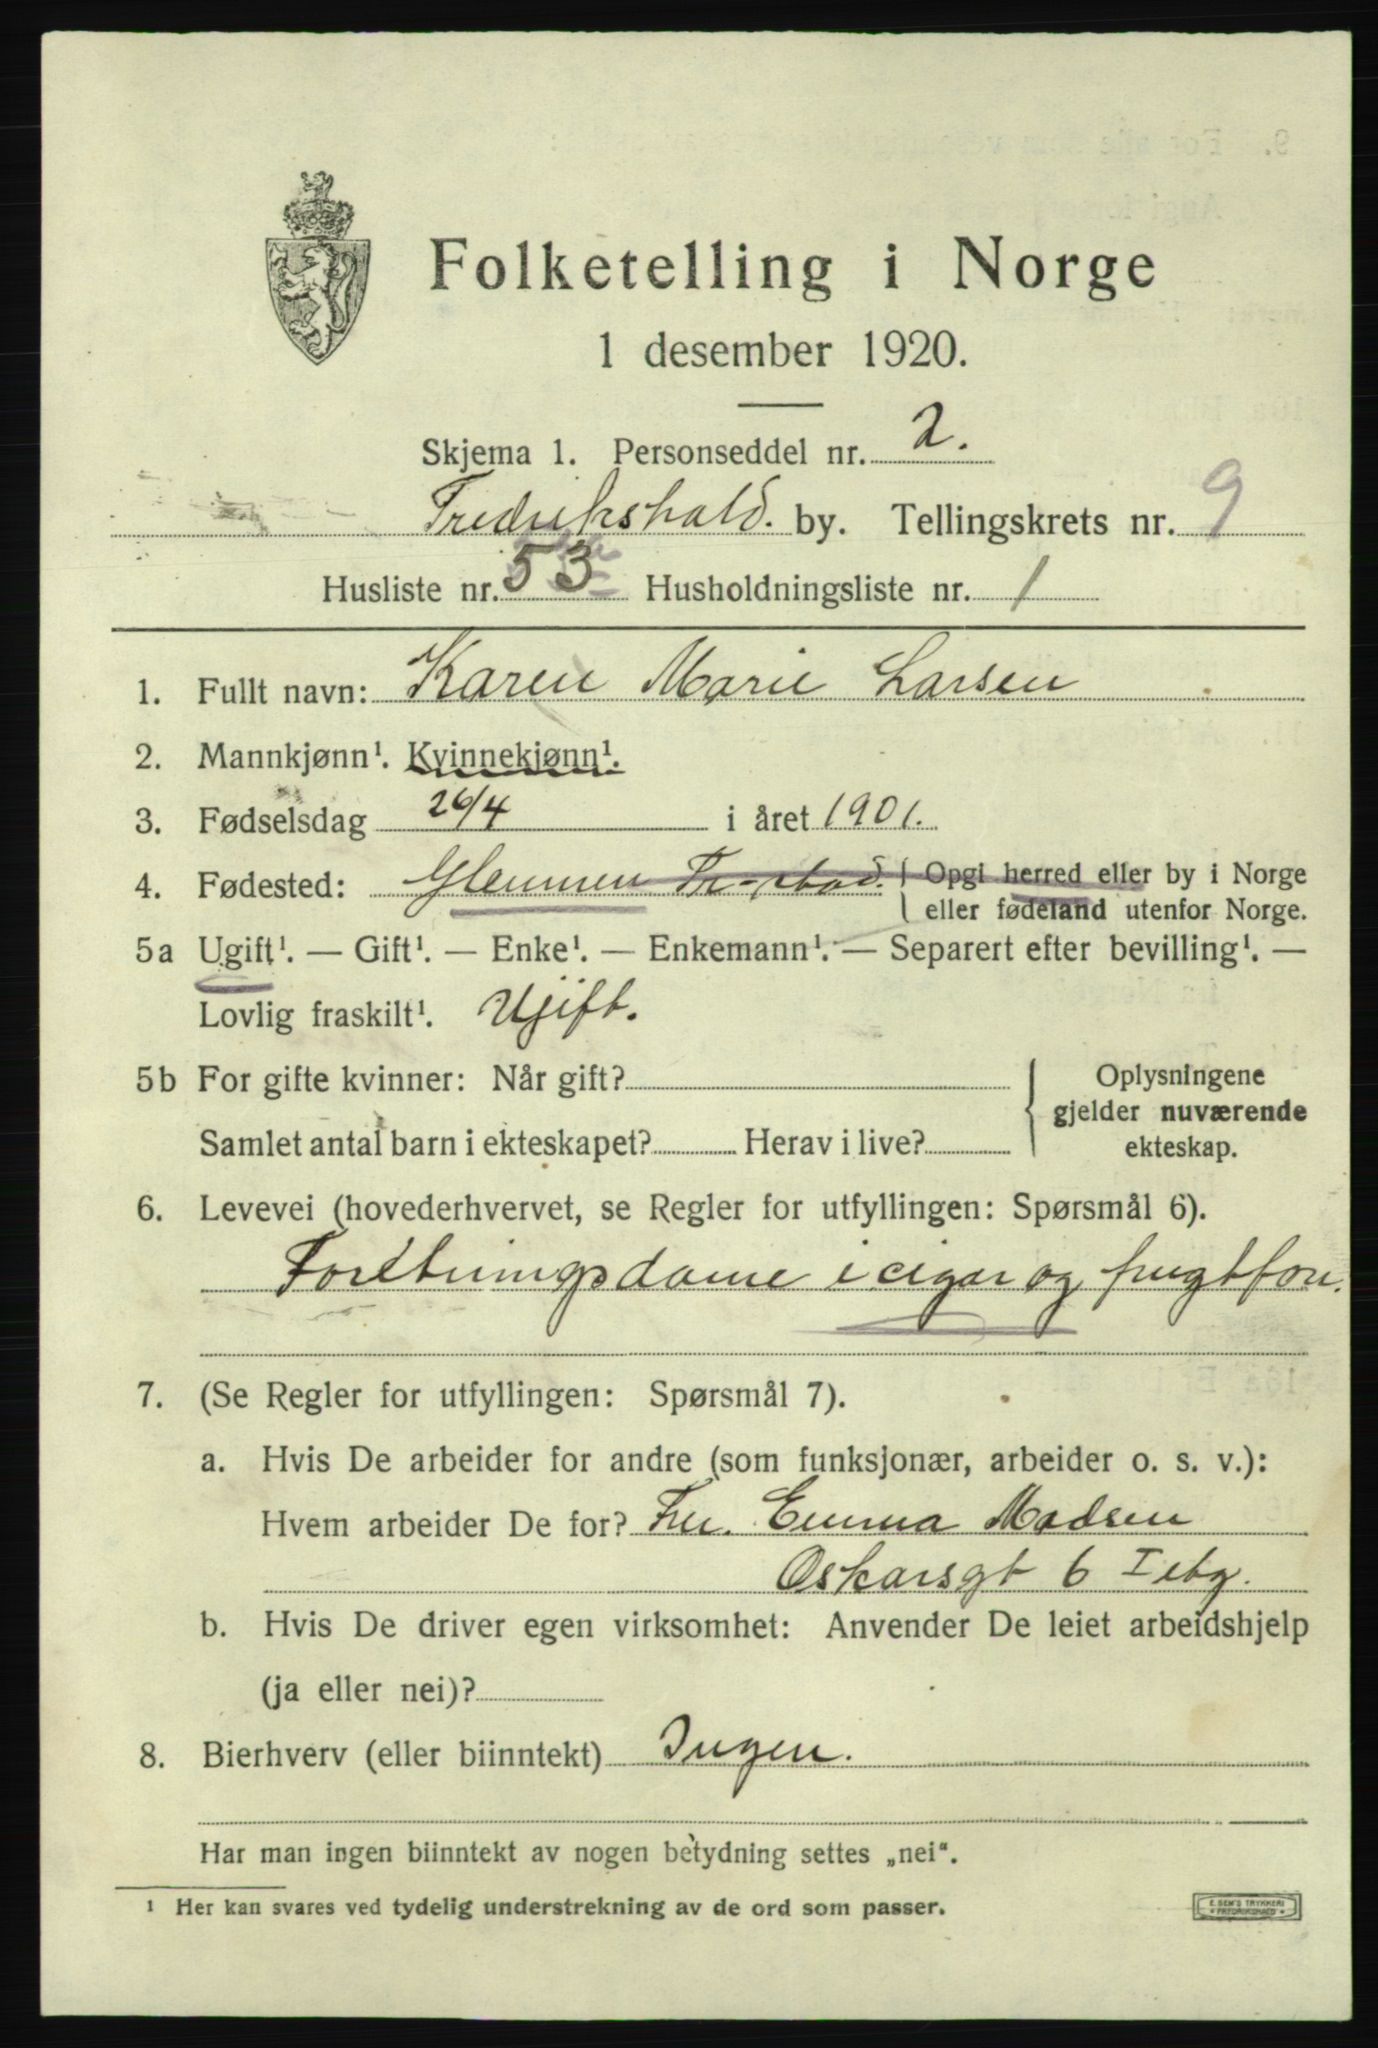 Folketelling i Norge
1 desember 1920.
Skjema 1. Personseddel nr. 2.
Fredrikshald. by. Tellingskrets nr. 9
Husliste nr. 53 Husholdningsliste nr. 1
1. Fullt navn: Karen Marie Larsen
2. Mannkjønn¹. Kvinnekjønn¹.
3. Fødselsdag 26/4 i året 1901.
4. Fødested: Glemmen Fr-stad. Opgi herred eller by i Norge
eller fødeland utenfor Norge.
5a Ugift¹. — Gift¹. — Enke¹. — Enkemann¹. — Separert efter bevilling¹. —
Lovlig fraskilt¹. Ugift.
5b For gifte kvinner: Når gift?
Samlet antal barn i ekteskapet? Herav i live?
Oplysningene
gjelder nuværende
ekteskap.
6. Levevei (hovederhvervet, se Regler for utfyllingen: Spørsmål 6).
Foretningsdame i cigar og frugtforr.
7. (Se Regler for utfyllingen: Spørsmål 7).
a. Hvis De arbeider for andre (som funksjonær, arbeider o. s. v.):
Hvem arbeider De for? Fru. Emma Madsen
Oskarsgt 6 I etg.
b. Hvis De driver egen virksomhet: Anvender De leiet arbeidshjelp
(ja eller nei)?
8. Bierhverv (eller biinntekt) Ingen.
Har man ingen biinntekt av nogen betydning settes „nei“.
¹ Her kan svares ved tydelig understrekning av de ord som passer.
E. SEM'S TRYKKERI
FREDRIKSHALD